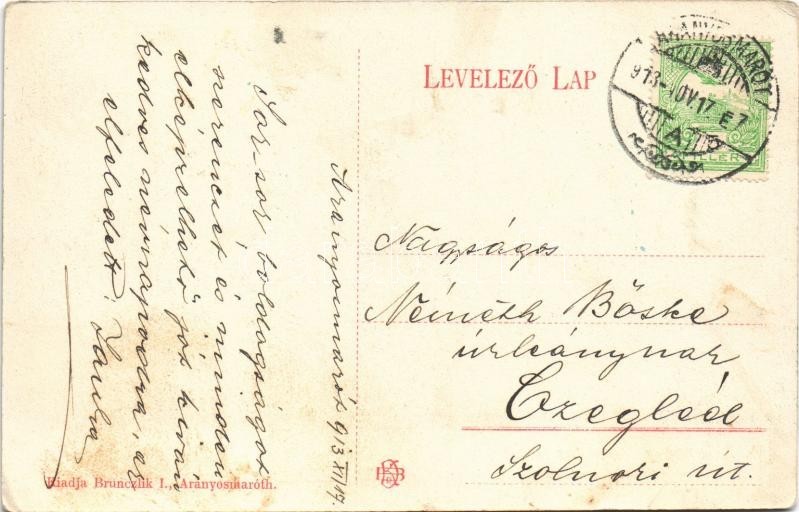 LEVELEZŐ LAP
ARANYOSMARÓT
913 NOV. 17. E 7
A
FILLÉR
Nagyságos
Németh Böske
úrleánynak
Czegléd
Szolnoki út.
Aranyosmarót 913 XI/17.
Sok-sok boldogságot
szerencsét és minden
elképzelhető jót kíván
kedves névnapodra, el
feledett: Paula
Kiadja Brunczlik I., Aranyosmaróth.